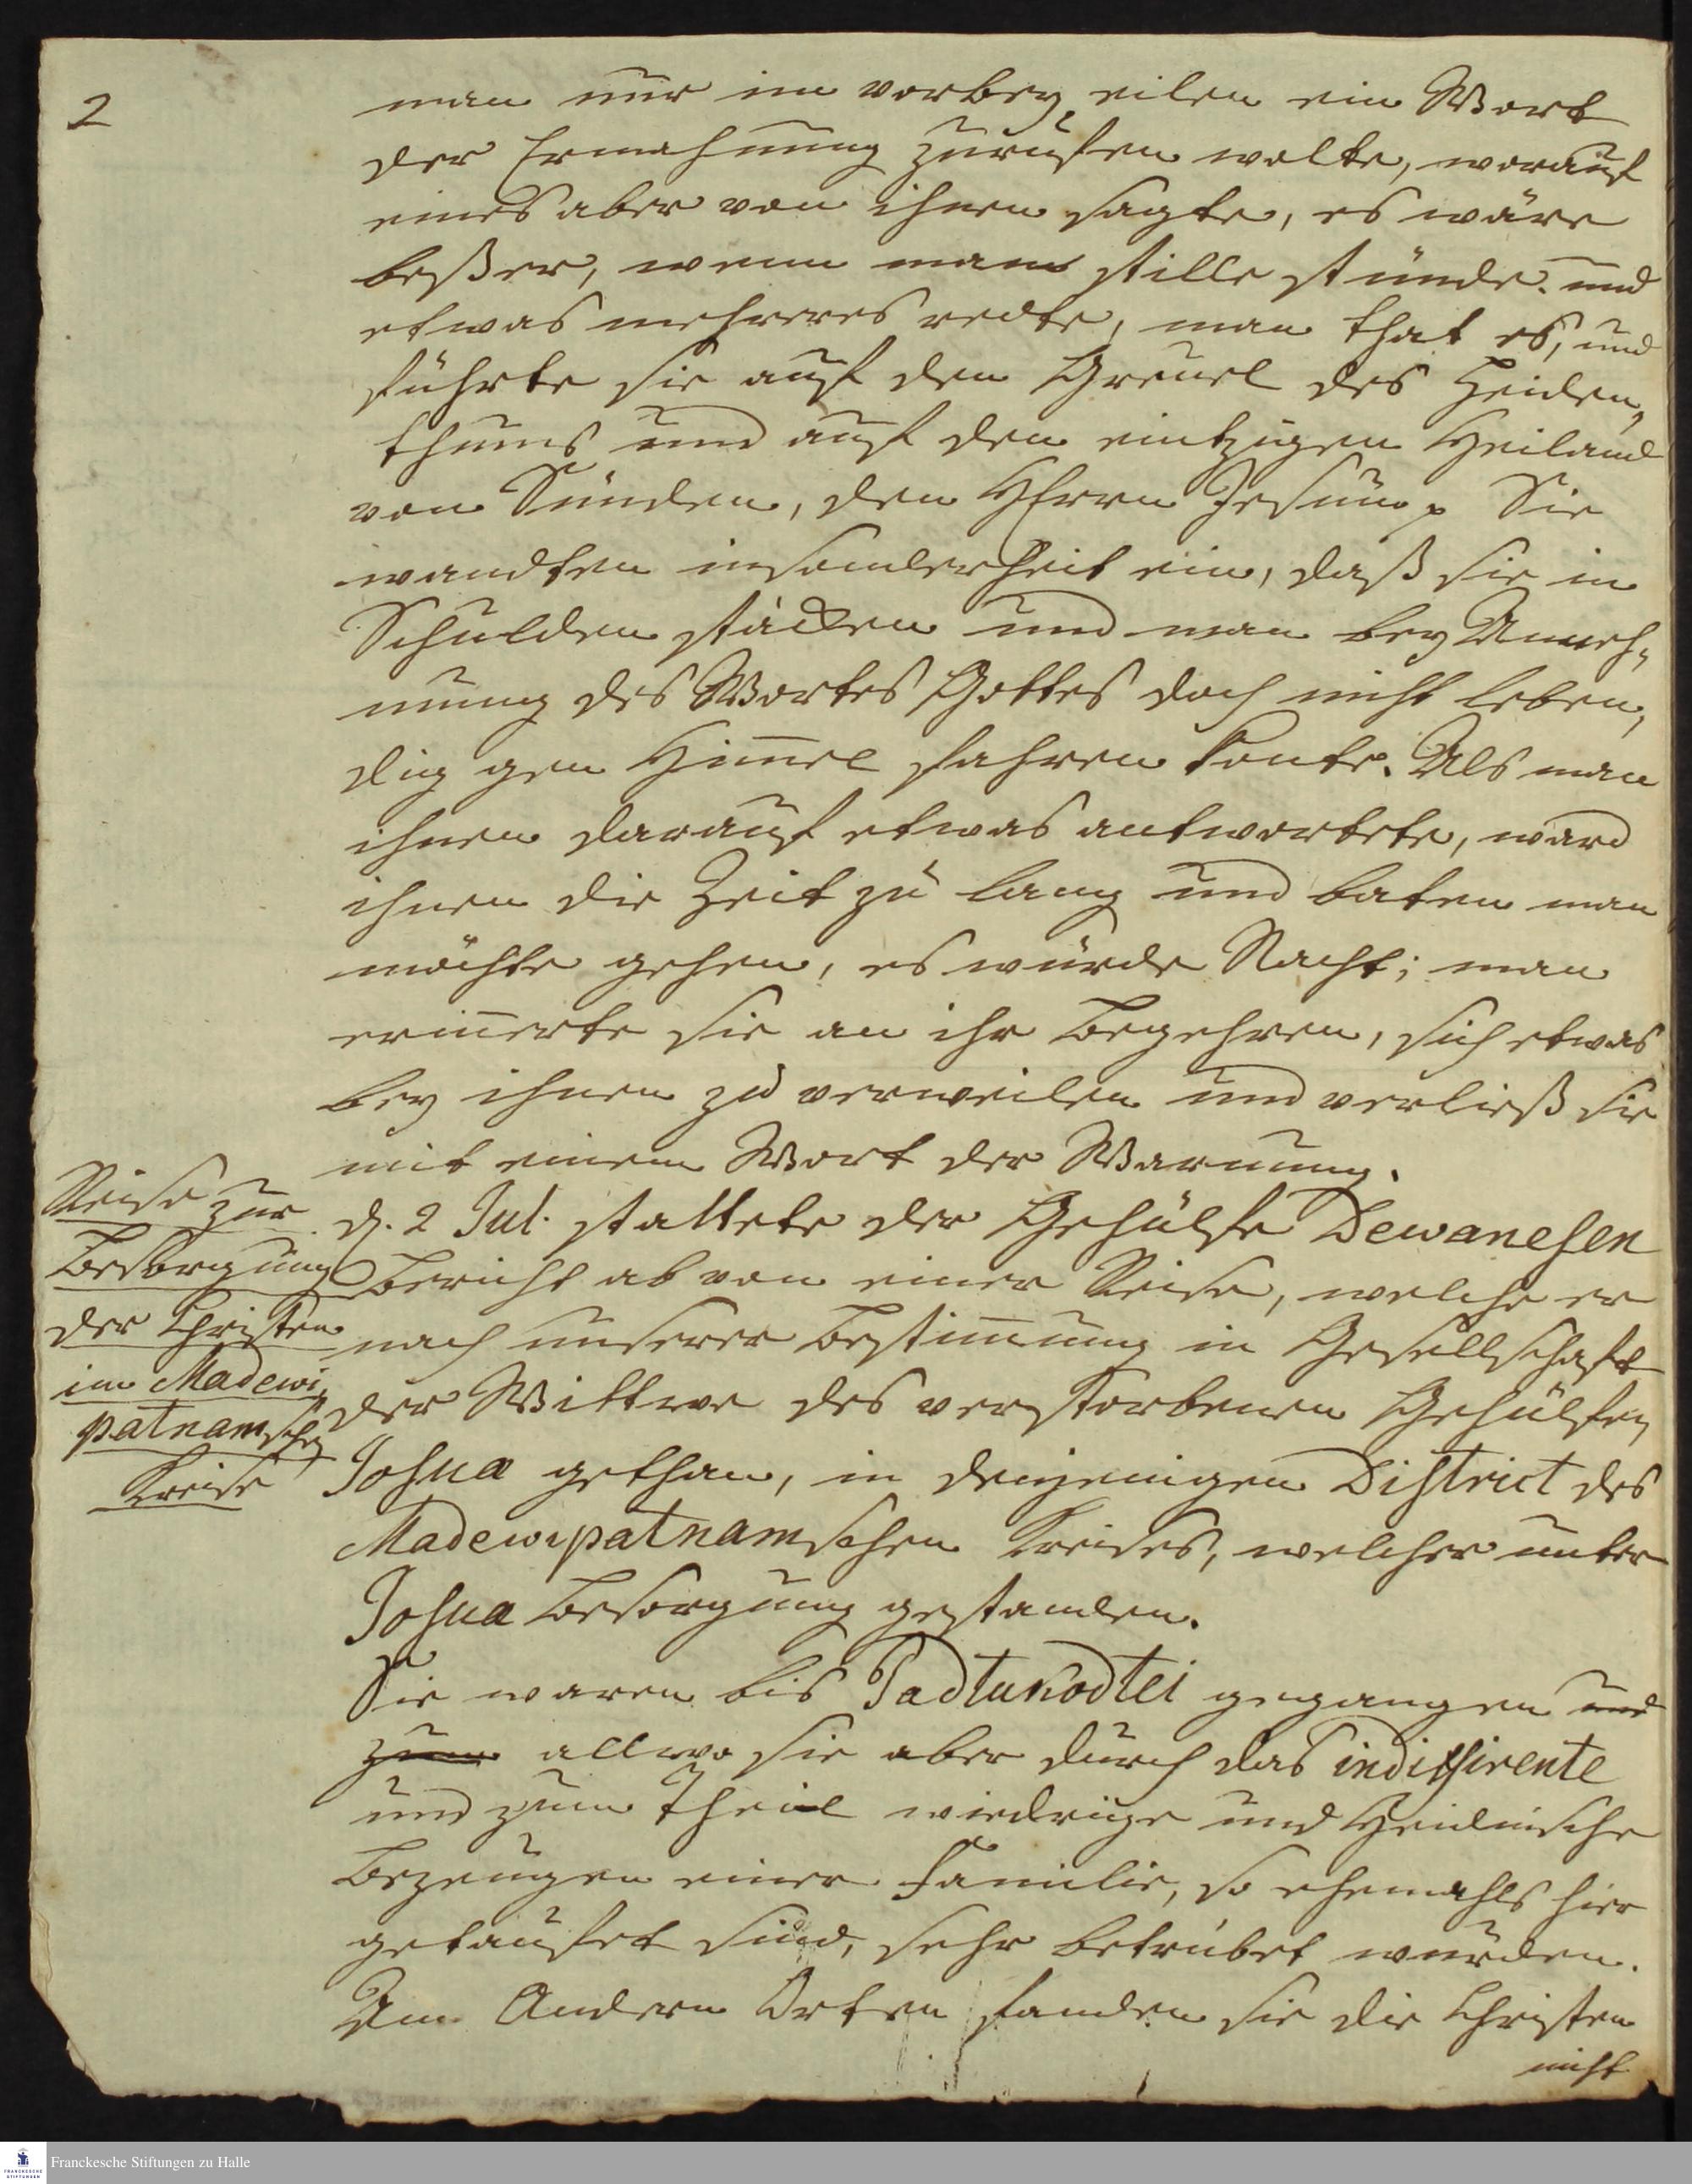 2
man nur im vorbey eilen ein Wort
der Ermahnung zurufen wolte, worauf
eines aber von ihnen sagte, es wäre
beßer, wenn man stille stünde und
etwas mehreres redte, man that es, und
führte sie auf den Greuel des Heiden,
thums und auf den eintzigen Heiland
von Sünden, den HErrn Jesum. Sie
wandten insonderheit ein, daß sie in
Schulden stäcken und man bey Anneh,
mung des Wortes Gottes doch nicht leben,
dig gen Him̄el fahren konte. Als man
ihnen darauf etwas antwortete, ward
ihnen die Zeit zu lang und baten man
möchte gehen, es würde Nacht; man
erin̄erte sie an ihr Begehren, sich etwas
bey ihnen zu verweilen und verließ sie
mit einem Wort der Warnung.
Reise zur
Besorgung
der Christen
im Madewi,
patnamschen
Kreise
d. 2 Jul. stattete der Gehülfe Dewanesen
Bericht ab von einer Reise, welche er
nach unserer Bestim̄ung in Gesellschaft
der Wittwe des verstorbenen Gehülfen
Josua gethan, in denjenigen District des
Madewipatnamschen Kreises, welcher unter
Josua Besorgung gestanden.
Sie waren bis Padtukodtei gegangen und
zum allwo sie aber durch das indifferente
und zum Theil wiedrige und Heidnische
Bezeugen einer Familie, so ehemahls hier
getaufet sind, sehr betrübet wurden.
An Andern Orten fanden sie die Christen
nicht
FRANCKESCHE
STIFTUNGEN
Franckesche Stiftungen zu Halle